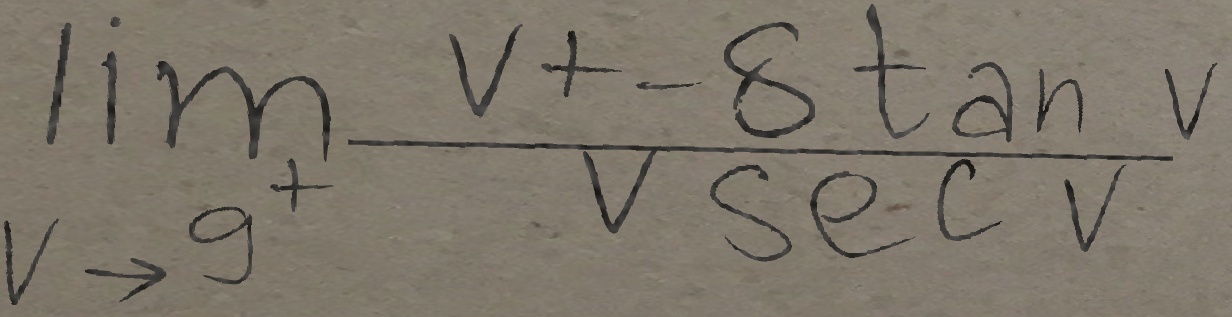 lim v→9⁺ (v + -8 tan v)/(v sec v)